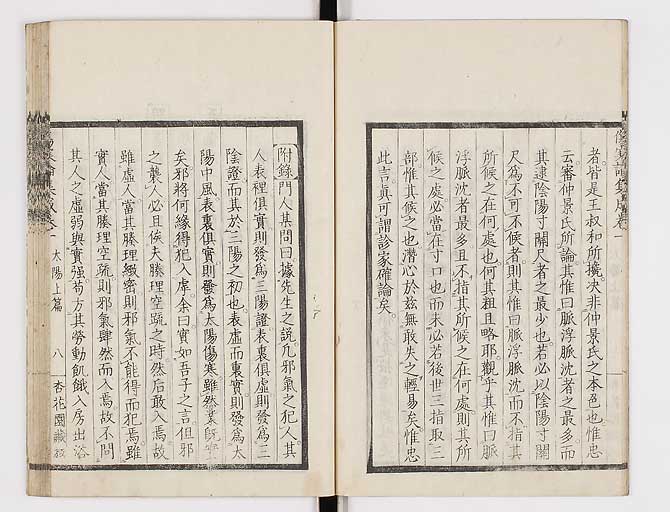 者皆是王叔和所攙決非仲景氏之本色也惟忠
云審仲景氏所論其惟曰脈浮脈沈者之最多而
其建陰陽寸關尺者之最少也若必以陰陽寸關
尺為不可不候者則其惟曰脈浮脈沈而不指其
所候之在何處也何其粗且略耶觀乎其惟曰脈
浮脈沈者最多且不指其所候之在何處則其所
候之處必當在寸口也而未必若後世三指取三
部惟其候之也潛心於茲無敢失之輕易矣惟忠
此言真可謂診家確論矣
附錄門人某問曰據先生之說凡邪氣之犯人其
人表裡俱實則發為三陽證表裏俱虛則發為三
陰證而其於三陽之初也表虛而裏實則發為太
陽中風表裏俱實則發為太陽傷寒雖然業既實
矣邪將何緣得犯入虖余曰實如吾子之言但邪
之襲人必且俟夫腠理空疏之時然后敢入焉故
雖虛人當其腠理緻密則邪氣不能得而犯焉雖
實人當其腠理空疏則邪氣肆然而入焉故不問
其人之虛弱與實强苟方其勞動飢餓入房出浴
太陽上篇
八
杏花園藏板